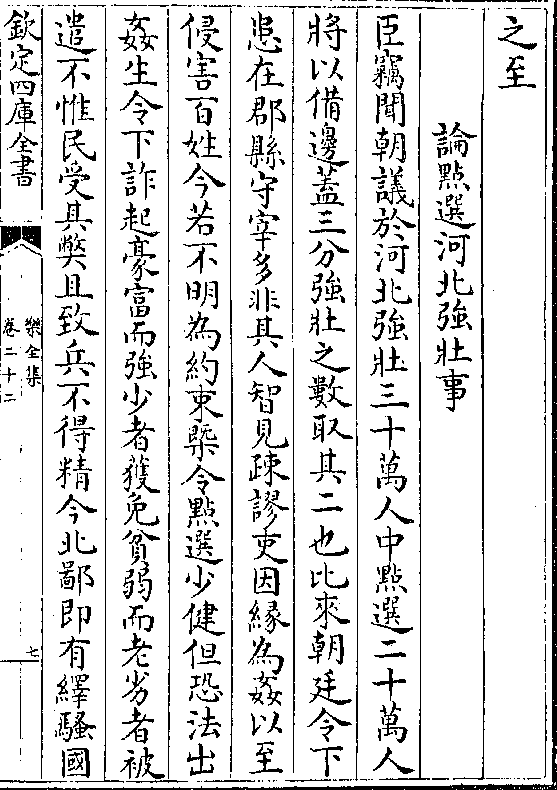 之至
論點選河北強壯事
臣竊聞朝議於河北強壯三十萬人中點選二十萬人
將以備邊蓋三分強壯之數取其二也比來朝廷令下
患在郡縣守宰多非其人智見疎謬吏因緣為姦以至
侵害百姓今若不明為約束槩令點選少健但恐法出
姦生令下詐起豪富而強少者獲免貧弱而老劣者被
遣不惟民受其弊且致兵不得精今北鄙即有繹騷國
欽定四庫全書
樂全集
卷二十二
七